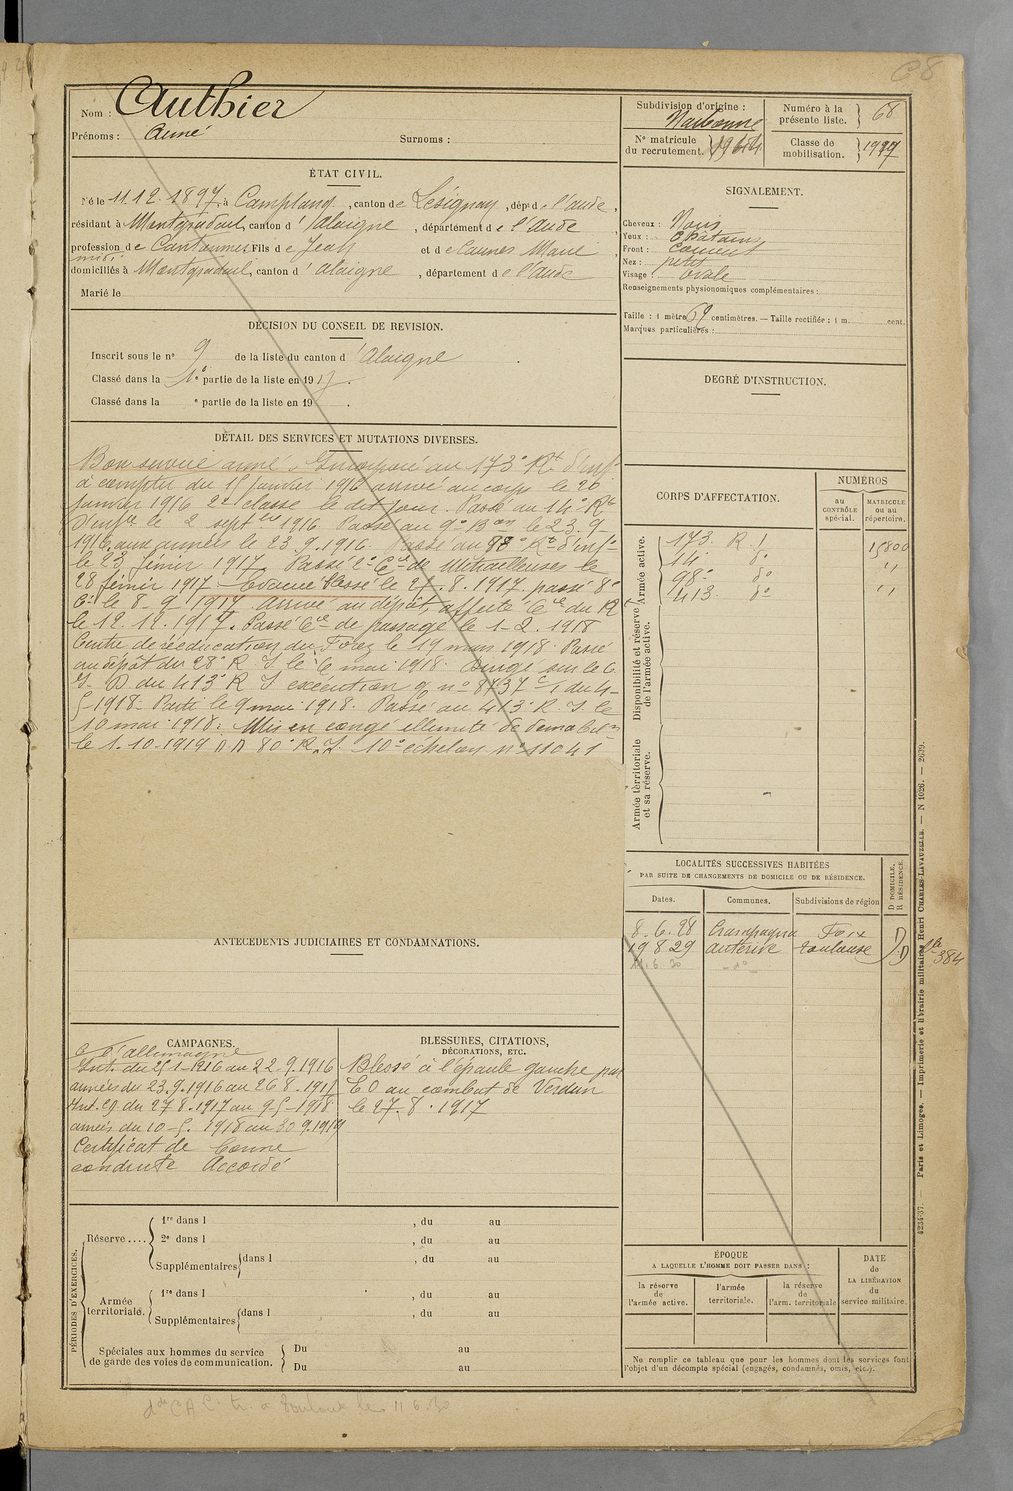 C8
Nom : Authier
Prénoms : Aimé Surnoms :
ÉTAT CIVIL.
Né le 11.12.1897, à Camplong, canton de Lésignan, dépt de l'Aude,
résidant à Montgradail, canton d'Alaigne, département de l'Aude,
profession de Cantonnier Fils de Jean et de Caunes Marie
midi
domiciliés à Montgradail, canton d'Alaigne, département de l'Aude
Marié le
DÉCISION DU CONSEIL DE REVISION.
Inscrit sous le n° 9 de la liste du canton d'Alaigne.
Classé dans la 1e partie de la liste en 1917.
Classé dans la e partie de la liste en 19 .
DÉTAIL DES SERVICES ET MUTATIONS DIVERSES.
Bon service armé. Incorporé au 173e Rt d'inf
à compter du 15 janvier 1916 arrivé au corps le 26
janvier 1916 2e classe le dit jour. Passé au 14e Rt
d'infie le 2 septbre 1916. Passé au 9e Bon le 23.9
1916, aux armées le 23.9.1916. Passé au 98e Rt d'infie
le 23 février 1917. Passé 2e Cie de Mitrailleuses le
28 février 1917. Evacué blessé le 27.8.1917. passé 8e
Cie le 8-9-1917 arrivé au dépôt, affecté Cie du R
le 12.12.1917. Passé Cie de passage le 1-2.1918
Centre de rééducation du Forez le 19 mars 1918. Passé
au dépôt du 28e R I le 6 mai 1918. Dirigé sur le C
I-D du 413e R I exécution n° 8737 C/1 du 4-
5-1918. Parti le 9 mai 1918. Passé au 413e R.I. le
10 mai 1918. Mis en congé illimité de démobilon
le 1.10.1919 D.D 80e R.I. 10e échelon n° 11041
ANTÉCÉDENTS JUDICIAIRES ET CONDAMNATIONS.
CAMPAGNES.
C. l'allemagne
Int. du 25-1-1916 au 22-9.1916
armées du 23.9.1916 au 26 8.1917
Int. CD du 27 8.1917 au 9-5-1918
armées du 10-5.1918 au 30 9.1919
Certificat de bonne
conduite Accordé
BLESSURES, CITATIONS,
DÉCORATIONS, ETC.
Blessé à l'épaule gauche par
EO au combat de Verdun
le 27.8.1917
PÉRIODES D'EXERCICES.
Réserve.... 1re dans l , du au
2e dans l , du au
Supplémentaires dans l , du au
Armée territoriale. 1re dans l , du au
Supplémentaires dans l , du au
Spéciales aux hommes du service
de garde des voies de communication. Du au
Du au
Subdivision d'origine :
Narbonne
N° matricule
du recrutement.
Numéro à la
présente liste. 68
Classe de
mobilisation. 1917
SIGNALEMENT.
Cheveux : Noirs
Yeux : Chatains
Front :
Nez : petit
Visage : Ovale
Renseignements physionomiques complémentaires :
Taille : 1 mètre 69 centimètres. — Taille rectifiée : 1 m. cent.
Marques particulières :
DEGRÉ D'INSTRUCTION.
CORPS D'AFFECTATION.
NUMÉROS
au
CONTRÔLE
spécial.
MATRICULE
ou au
répertoire.
Armée active.
173. R. I 15800
14. do "
98e do
413. do "
Disponibilité et réserve
de l'armée active.
Armée territoriale
et sa réserve.
LOCALITÉS SUCCESSIVES HABITÉES
PAR SUITE DE CHANGEMENTS DE DOMICILE OU DE RÉSIDENCE.
Dates. Communes. Subdivisions de région
D. DOMICILE.
R. RÉSIDENCE
8.6.28 Champagna Foix D
19 8 29 Auterive Toulouse D
11.6.30 - do -
384
ÉPOQUE
A LAQUELLE L'HOMME DOIT PASSER DANS :
la réserve
de
l'armée active.
l'armée
territoriale.
la réserve
de
l'arm. territoriale
DATE
de
LA LIBÉRATION
du
service militaire.
Ne remplir ce tableau que pour les hommes dont les services font
l'objet d'un décompte spécial (engagés, condamnés, omis, etc.).
5234-37. — Paris et Limoges. — Imprimerie et librairie militaires Henri CHARLES-LAVAUZELLE. — N 1026. — 2639.
à Toulouse le 11 6 30